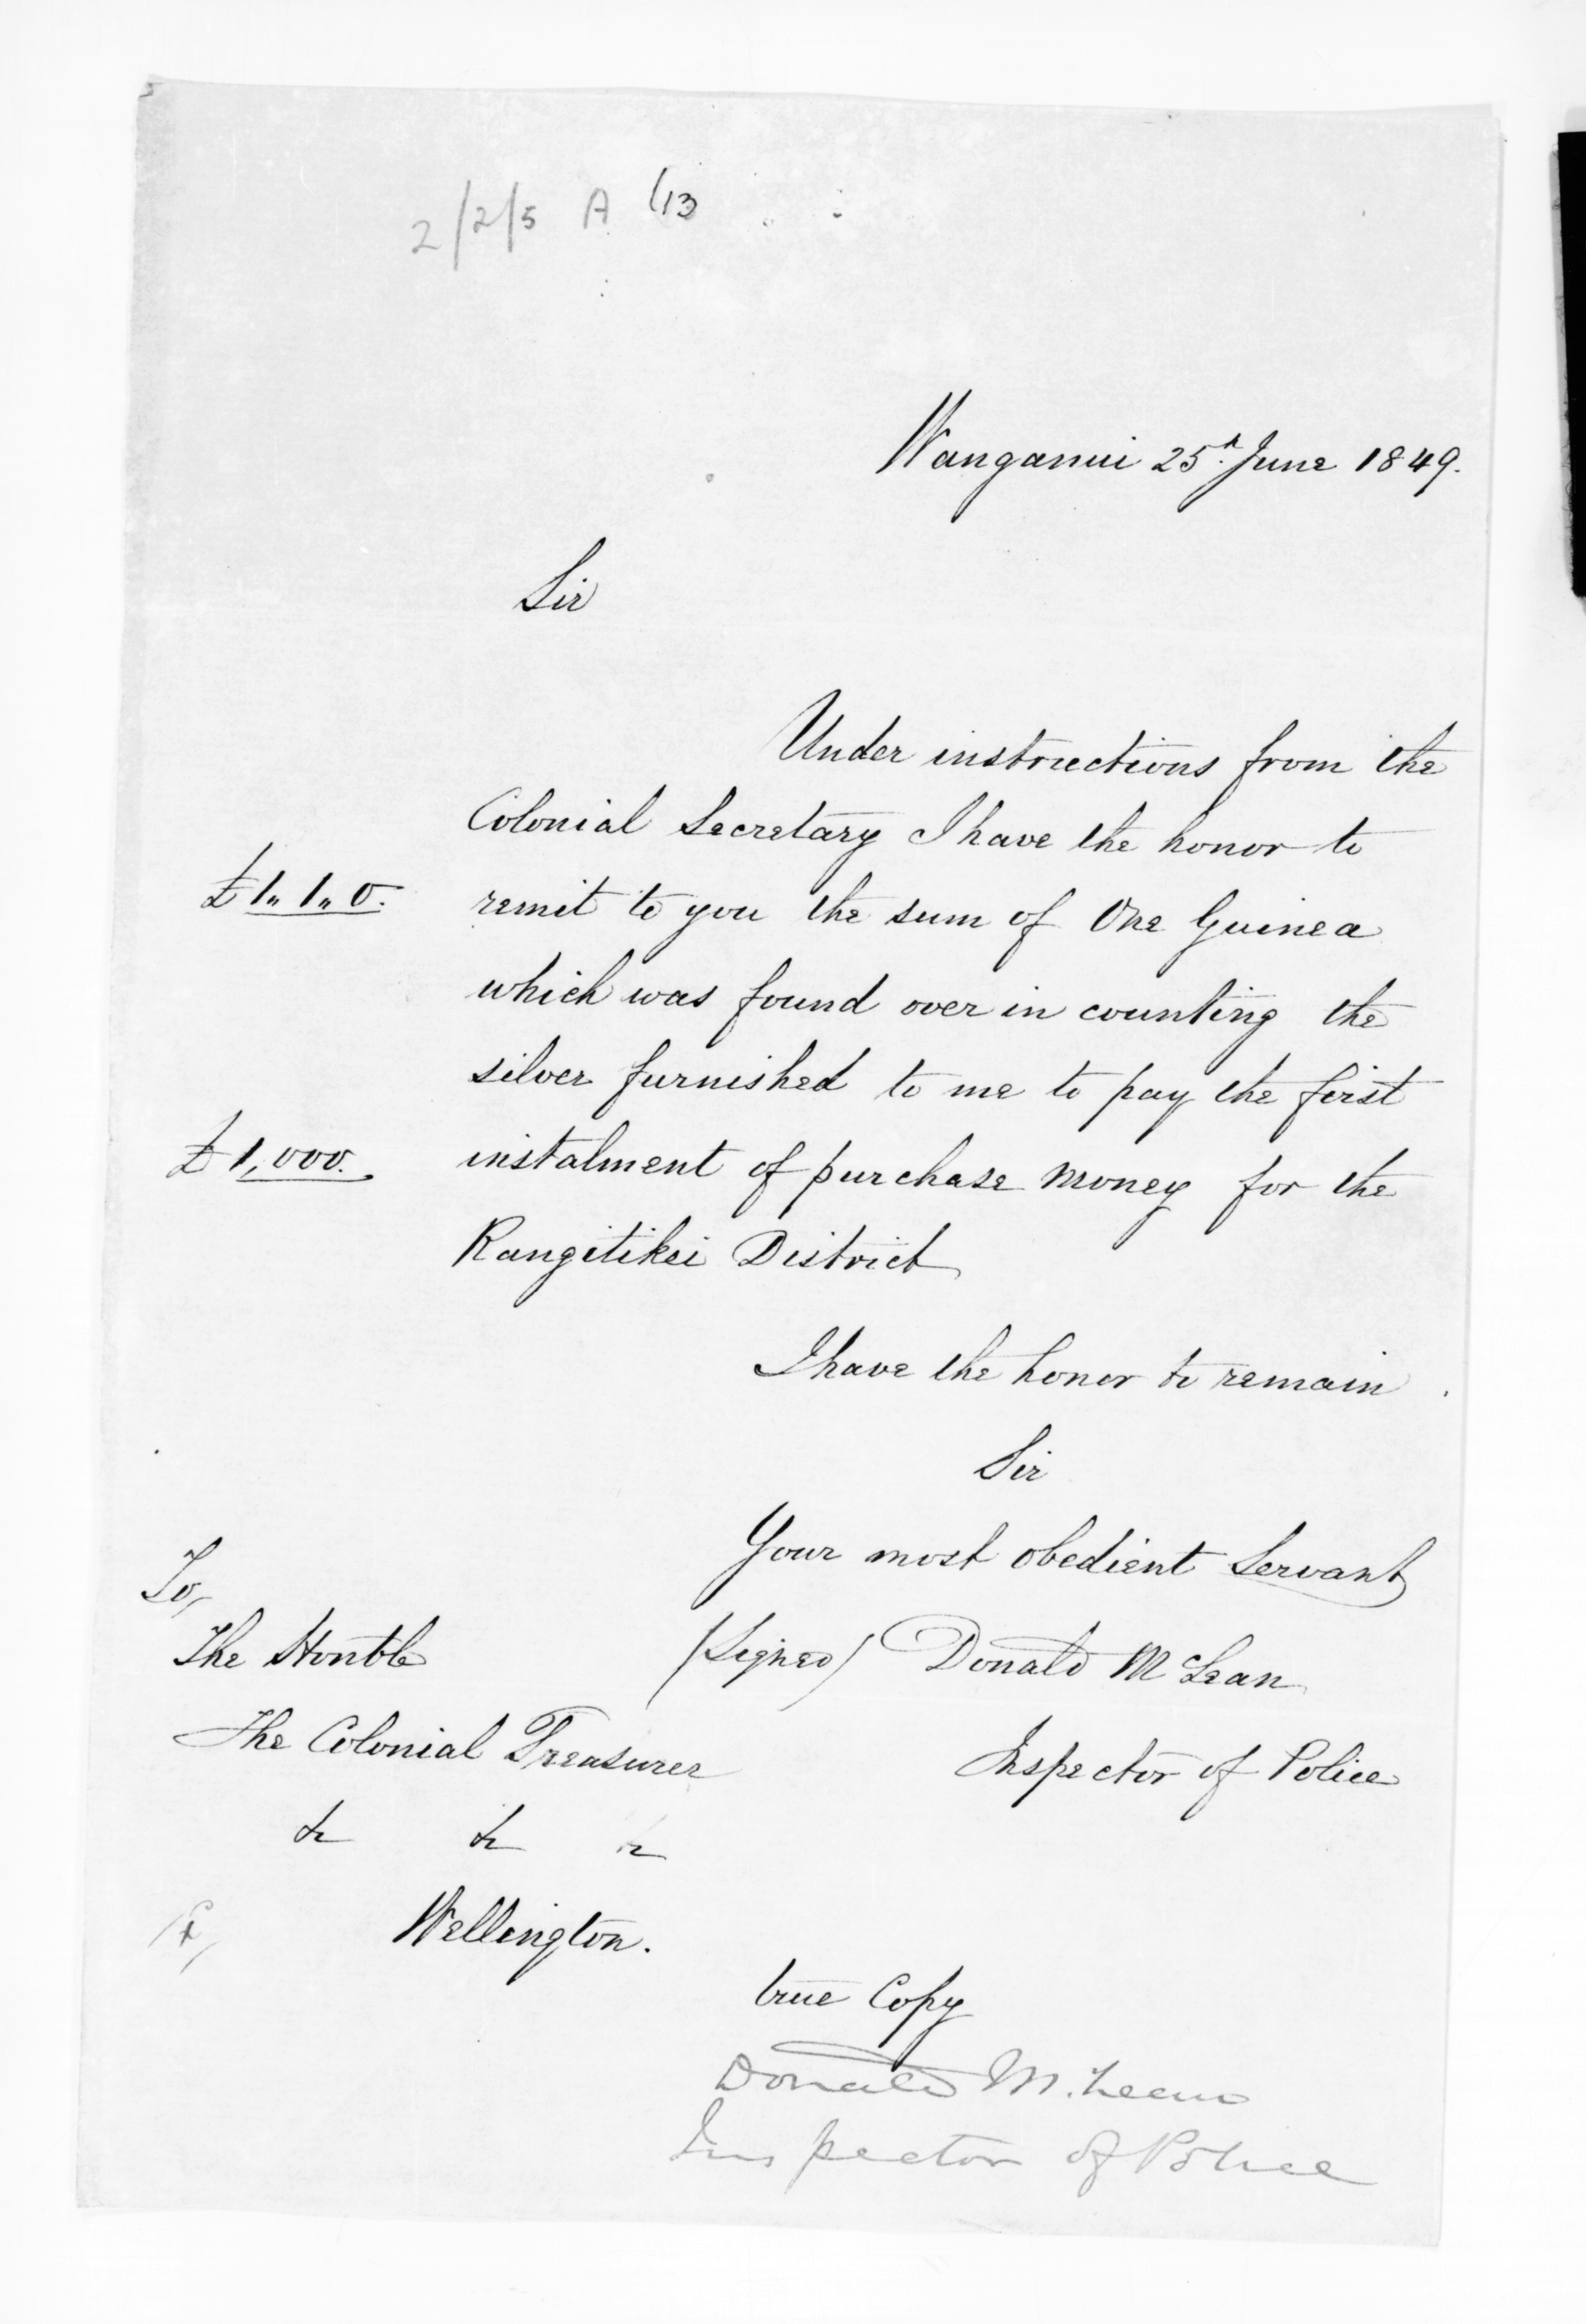 2/2/5 A (13
Wanganui 25th June 1849.
Sir
Under instructions from the
Colonial Secretary I have the honor to
£1"1"0. remit to you the sum of One Guinea
which was found over in counting the
silver furnished to me to pay the first
£1,000. instalment of purchase money for the
Rangitikei District
I have the honor to remain
Sir
Your most obedient Servant
(Signed) Donald McLean
Inspector of Police
To,
The Honble
The Colonial Treasurer
&c &c &c
Wellington.
true Copy
Donald McLean
Inspector of Police